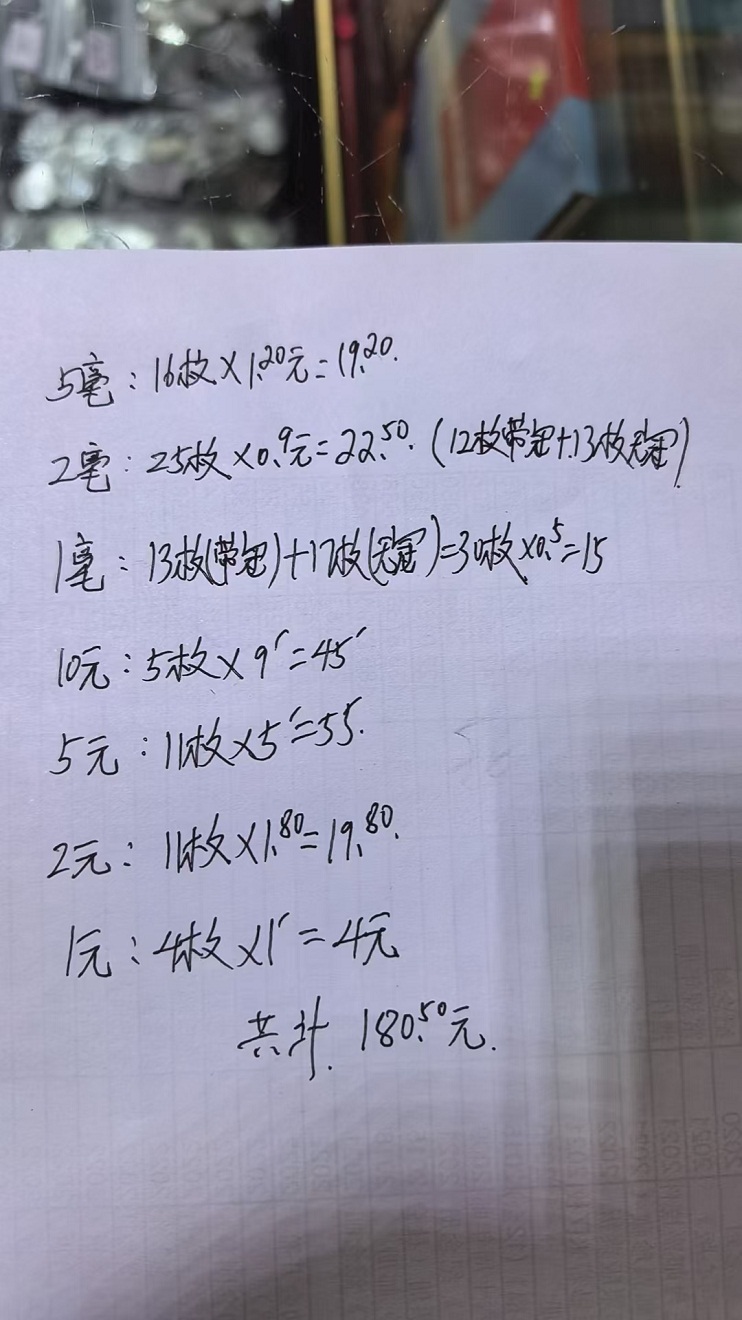 5毫：16枚×1.20元=19.20.
2毫：25枚×0.9元=22.50.（12枚带冠+13枚无冠）
1毫：13枚(带冠)+17枚(无冠)=30枚×0.5=15
10元：5枚×9=45
5元：11枚×5=55.
2元：11枚×1.80=19.80.
1元：4枚×1=4元
共计.180.50元.